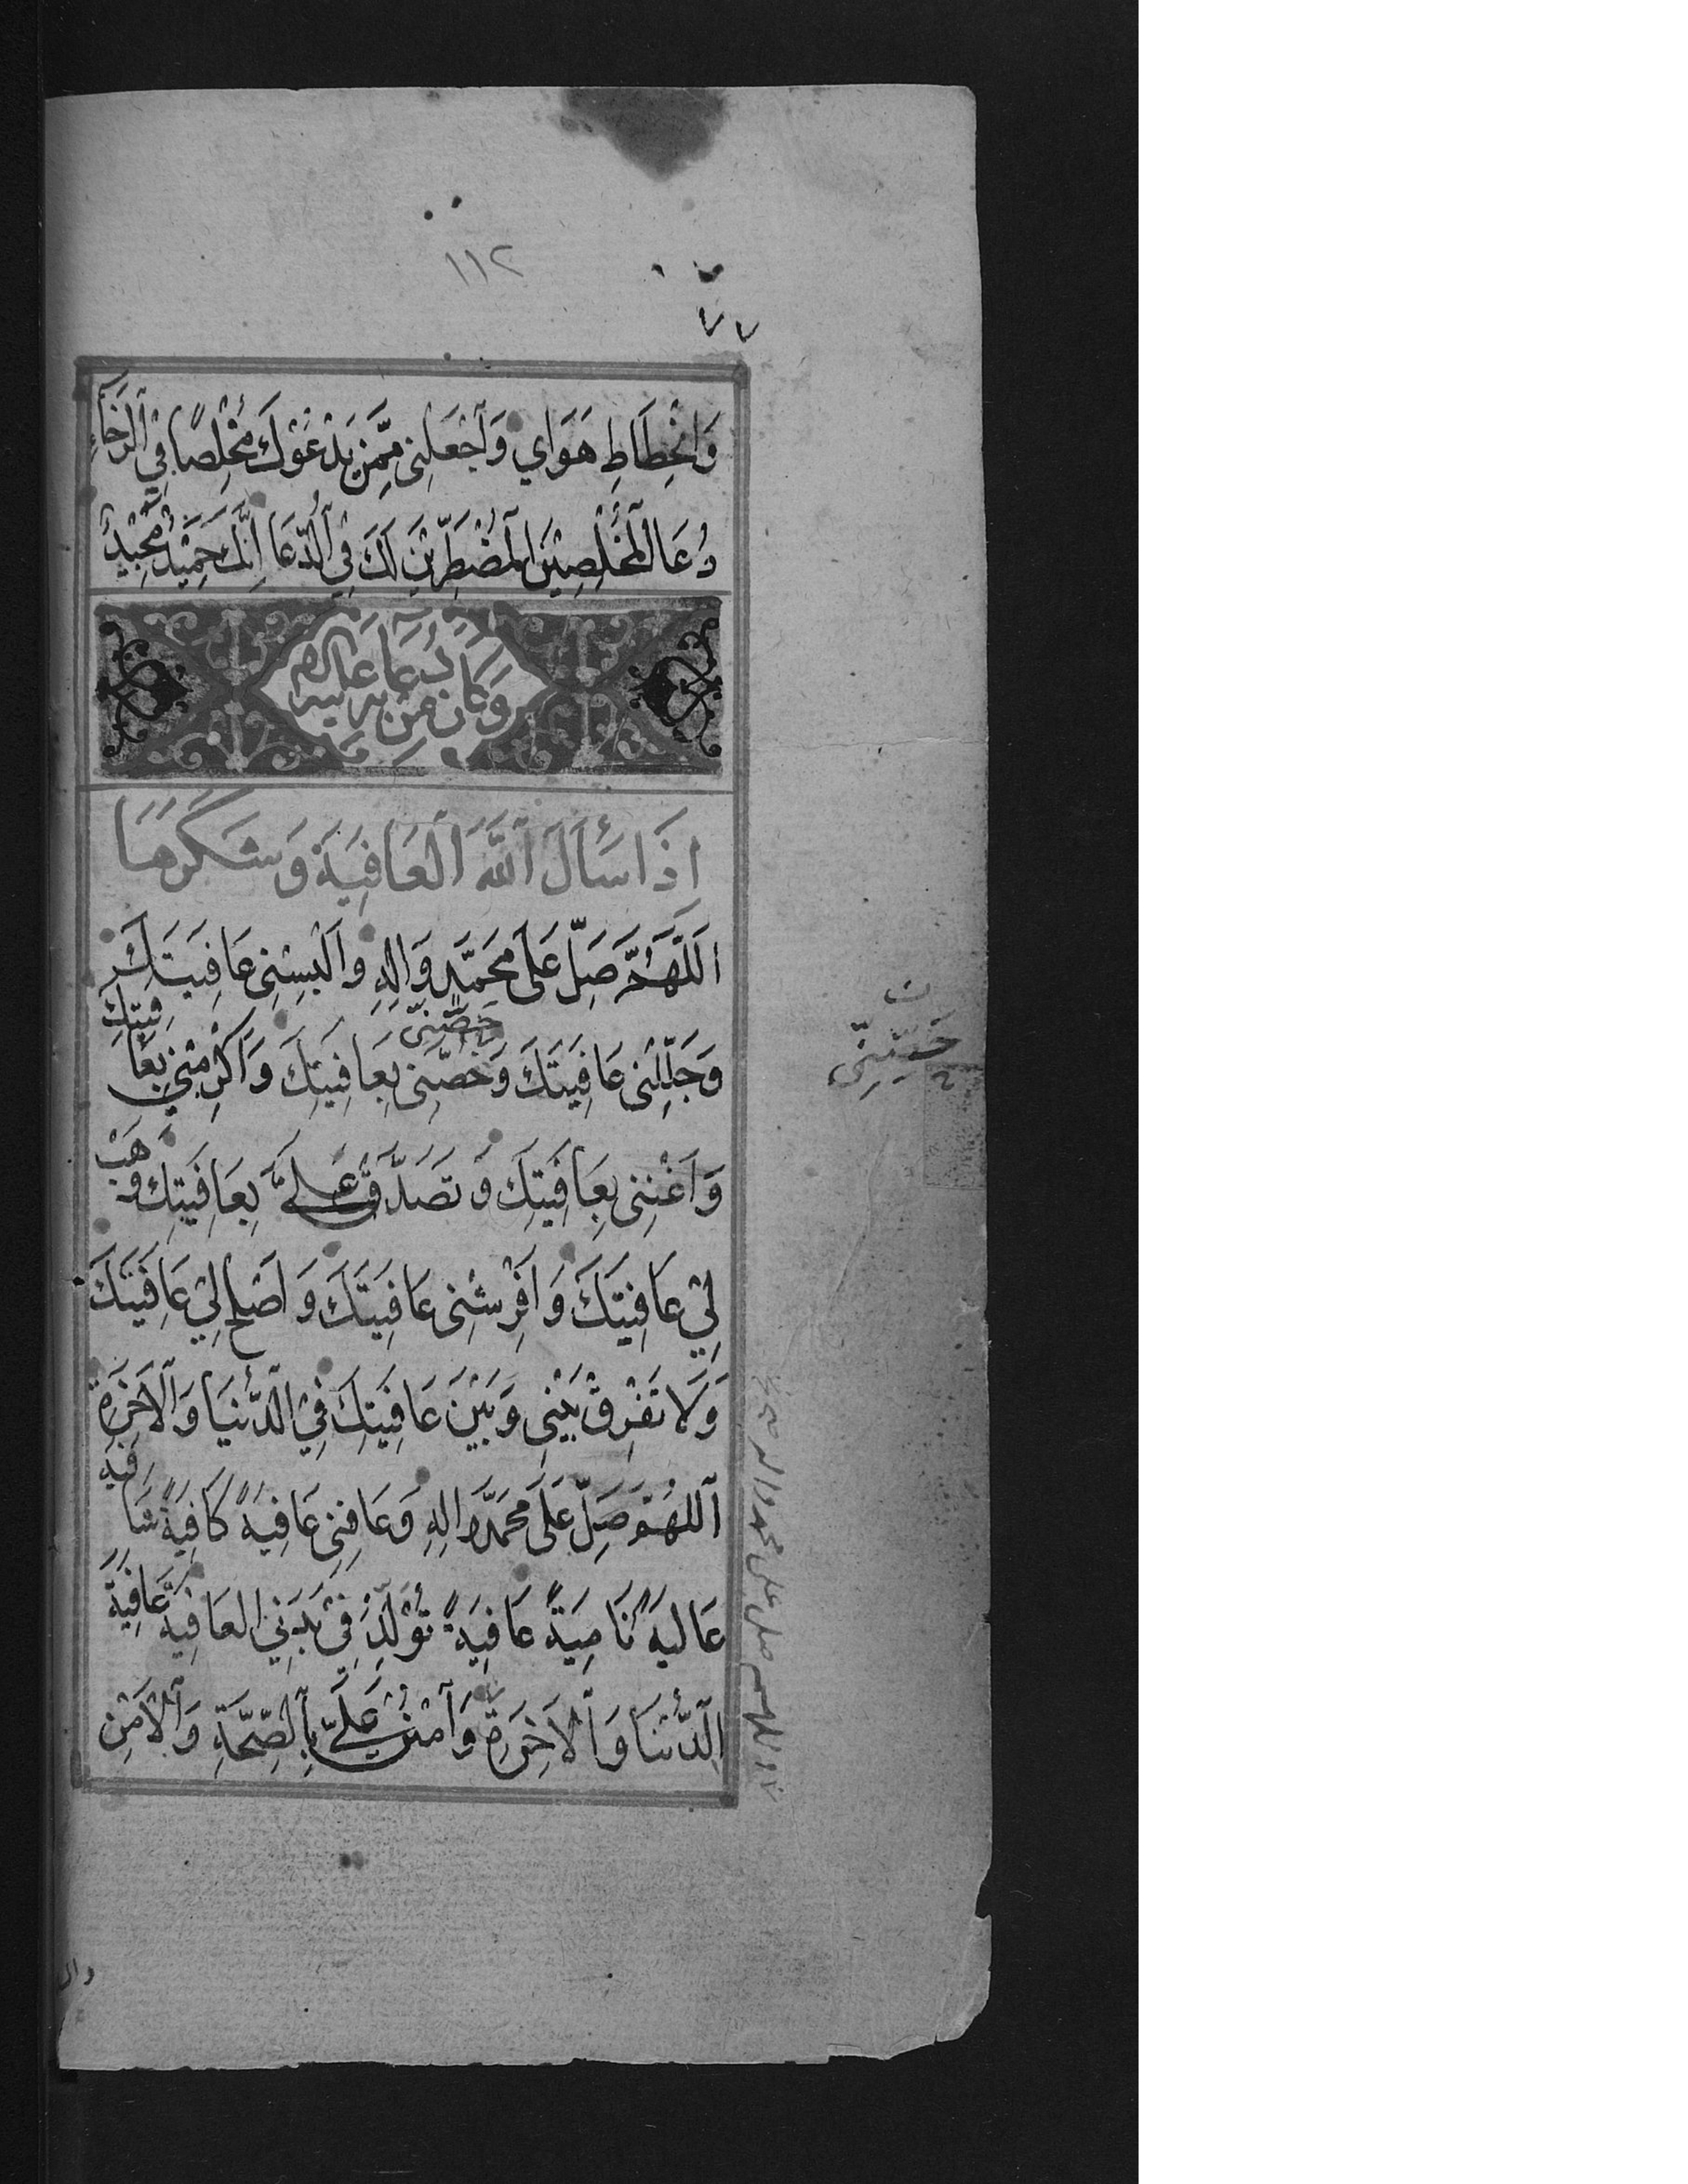 ١١٢
٧٧
وَانْحِطَاطِ هَوَاي وَاجْعَلْنِي مِمَّنْ يَدْعُوْكَ مُخْلِصًا فِي الرَّخَاءِ
دُعَا الْمُخْلِصِيْنَ الْمُضْطَرِّيْنَ لَكَ فِي الدُّعَا اِنَّكَ حَمِيْدٌ مَجِيْدٌ
وَكَانَ مِنْ دُعَائِهِ عَلَيْهِ السَّلَام
اِذَا سَأَلَ اللّٰهَ الْعَافِيَةَ وَشَكَرَهَا
اَللّٰهُمَّ صَلِّ عَلَى مُحَمَّدٍ وَاٰلِهِ وَاَلْبِسْنِي عَافِيَتَكَ
وَجَلِّلْنِي عَافِيَتَكَ وَحَصِّنِّي بِعَافِيَتِكَ وَاَكْرِمْنِي بِعَافِيَتِكَ
حَصِّنِّي
وَاَغْنِنِي بِعَافِيَتِكَ وَتَصَدَّقْ عَلَيَّ بِعَافِيَتِكَ وَهَبْ
لِيْ عَافِيَتَكَ وَاَفْرِشْنِي عَافِيَتَكَ وَاَصْلِحْ لِيْ عَافِيَتَكَ
وَلَا تَفْرِقْ بَيْنِي وَبَيْنَ عَافِيَتِكَ فِي الدُّنْيَا وَالْاٰخِرَةِ
اَللّٰهُمَّ صَلِّ عَلَى مُحَمَّدٍ وَاٰلِهِ وَعَافِنِي عَافِيَةً كَافِيَةً شَافِيَةً
عَالِيَةً نَامِيَةً عَافِيَةً تُوَلِّدُ فِيْ بَدَنِي الْعَافِيَةَ عَافِيَةَ
الدُّنْيَا وَالْاٰخِرَةِ وَامْنُنْ عَلَيَّ بِالصِّحَّةِ وَالْاَمْنِ
اللهم صل على محمد وال محمد